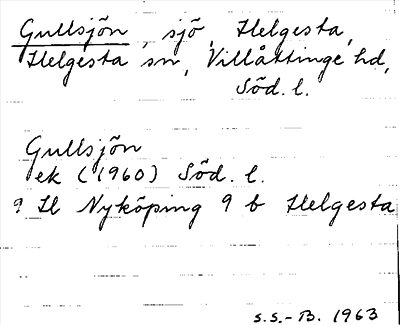 Gullsjön, sjö, Helgesta,
Helgesta sn, Villåttinge hd,
Söd. l.
Gullsjön
ek (1960) Söd. l.
9 H Nyköping 9 b Helgesta
S.S.-B. 1963